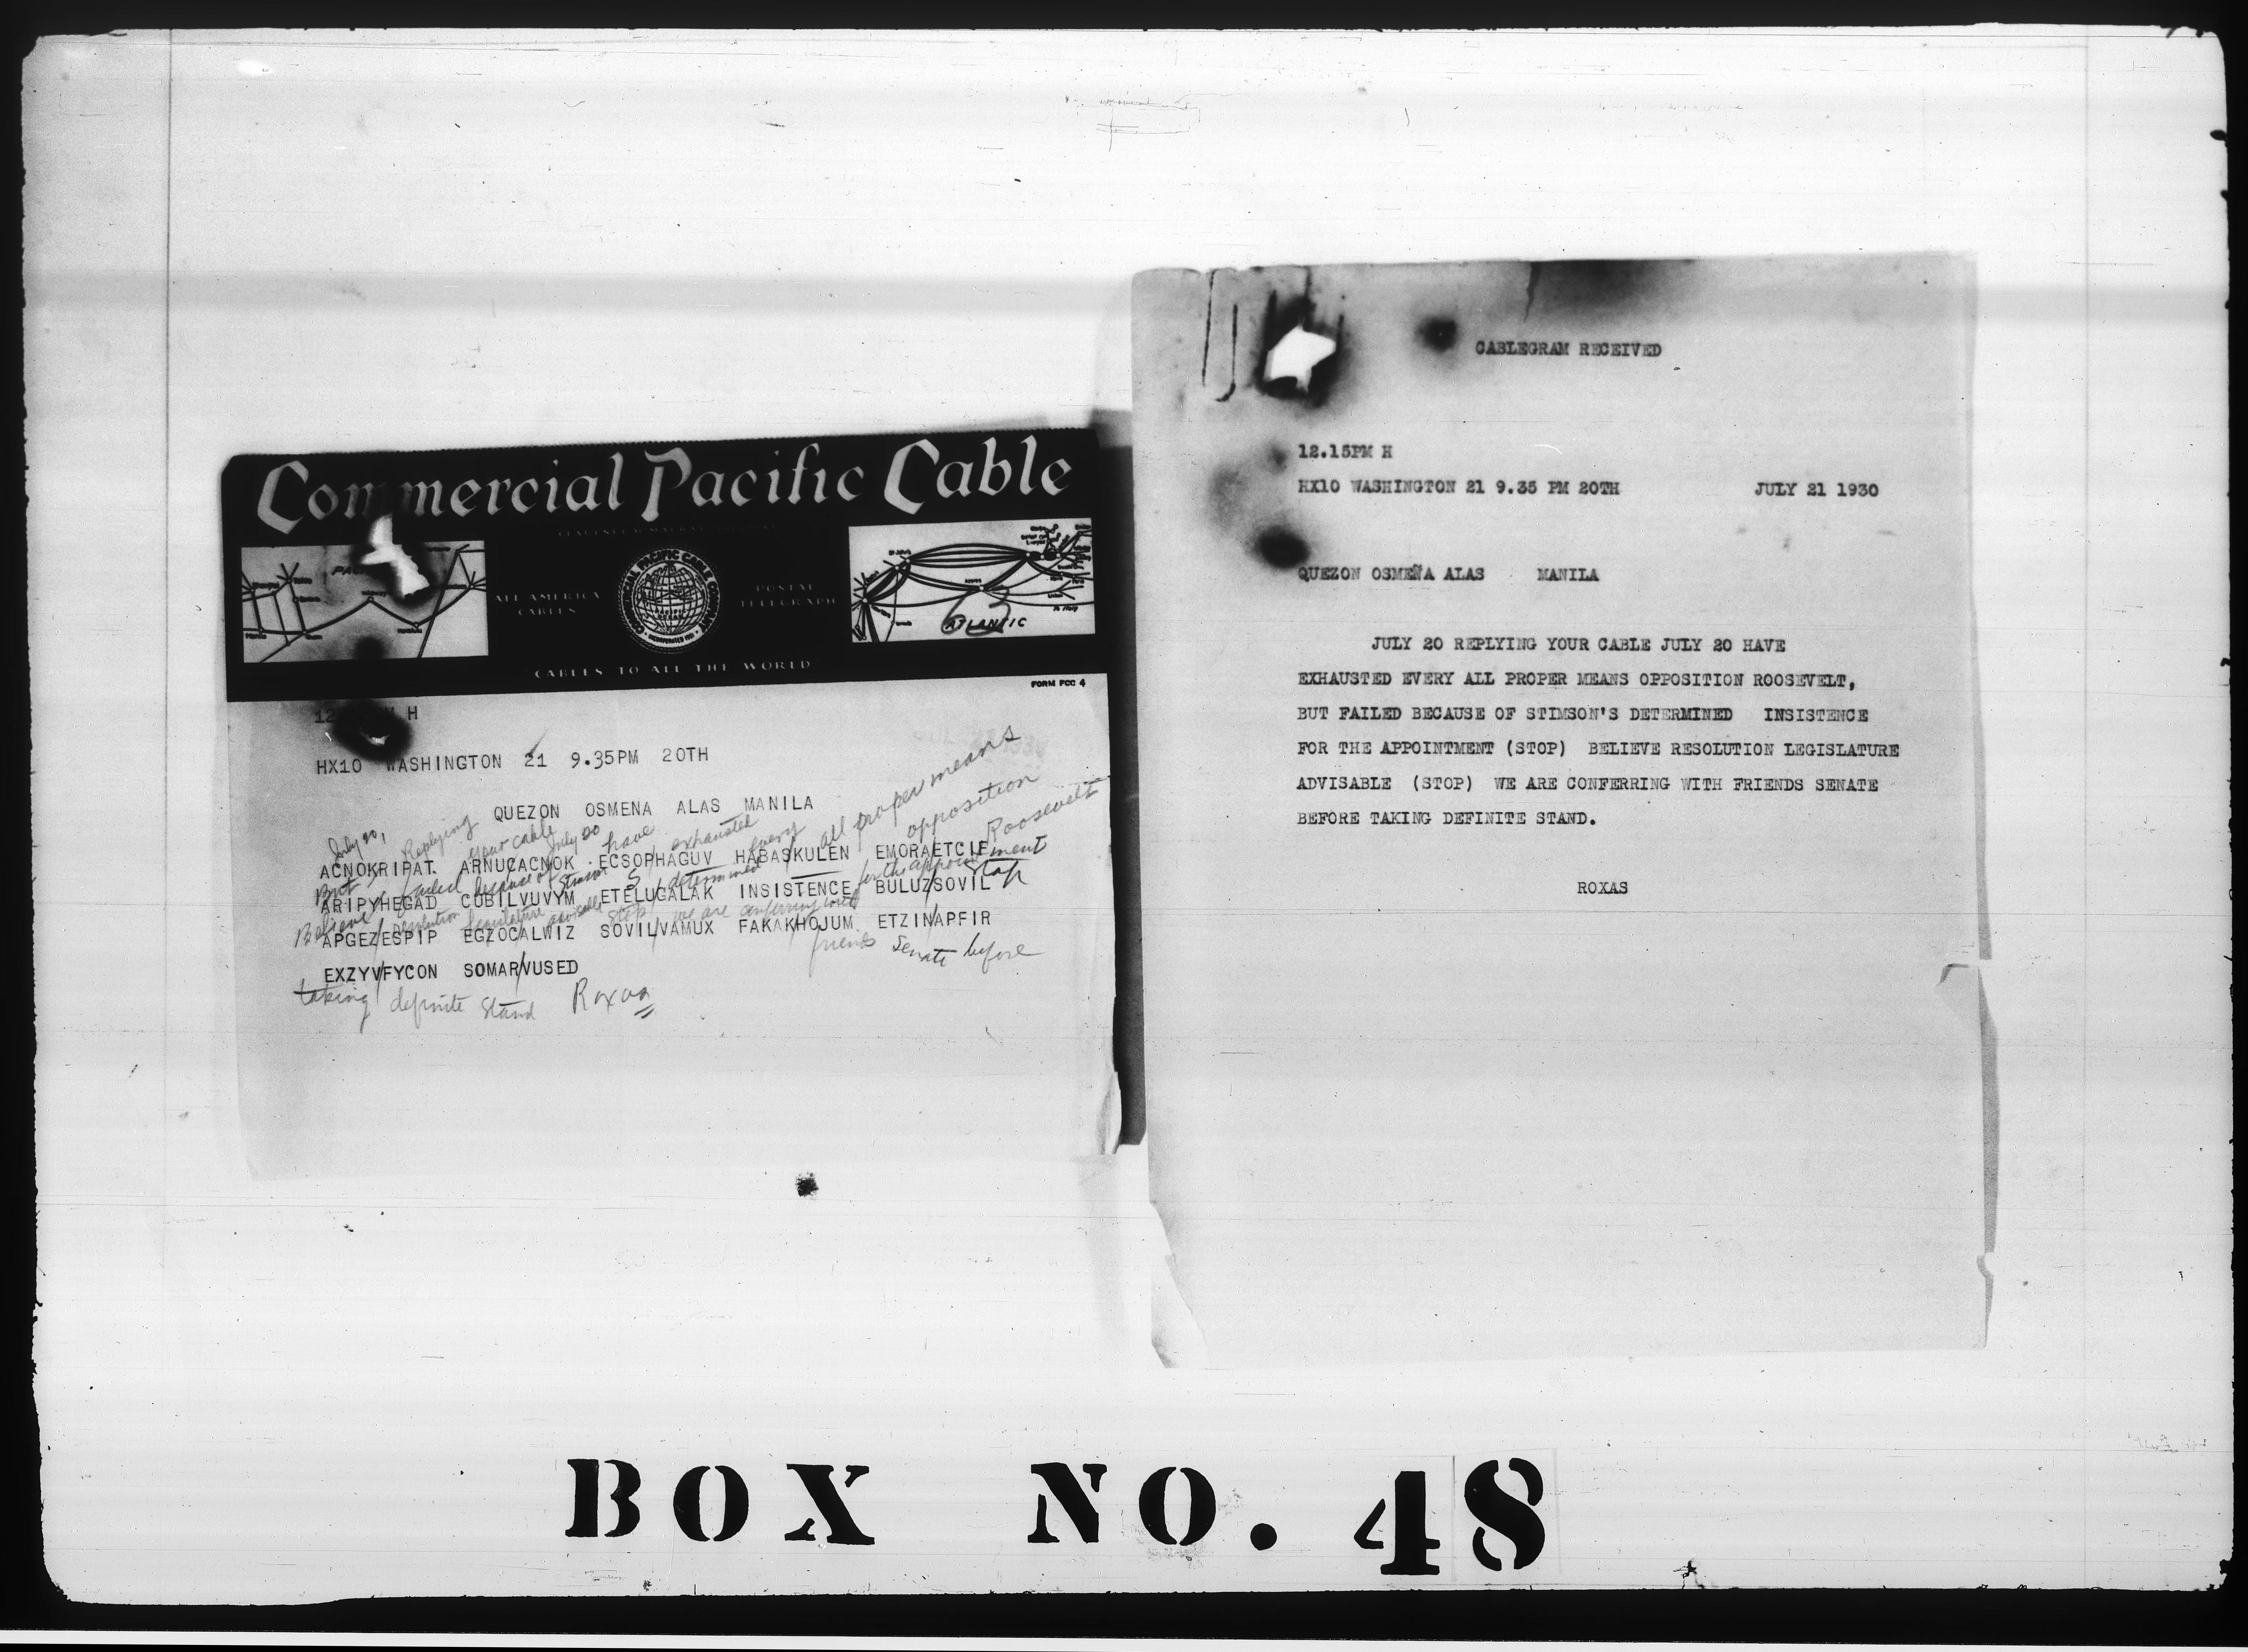 Commercial Pacific Cable
ALL AMERICA
CABLES
COMMERCIAL PACIFIC CABLE COMPANY
INCORPORATED 1901
POSTAL
TELEGRAPH
ATLANTIC
CABLES TO ALL THE WORLD
FORM FCC 4
12 M H
HX10 WASHINGTON 21 9.35PM 20TH
QUEZON OSMENA ALAS MANILA
July 20, Replying your cable July 20 have exhausted every all proper means opposition Roosevelt
ACNOKRIPAT ARNUCACNOK ECSOPHAGUV HABASKULEN EMORAETCIF
But failed because of Stimson S determined for the appointment Stop
ARIPYHEGAD COBILVUVYM ETELUGALAK INSISTENCE BULUZSOVIL
Believe resolution legislature advisable stop we are conferring with
APGEZESPIP EGZOCALWIZ SOVILVAMUX FAKAKHOJUM ETZINAPFIR
friends Senate before
EXZYVFYCON SOMARVUSED
taking definite stand Roxas
CABLEGRAM RECEIVED
12.15PM H
HX10 WASHINGTON 21 9.35 PM 20TH JULY 21 1930
QUEZON OSMEÑA ALAS MANILA
JULY 20 REPLYING YOUR CABLE JULY 20 HAVE
EXHAUSTED EVERY ALL PROPER MEANS OPPOSITION ROOSEVELT,
BUT FAILED BECAUSE OF STIMSON'S DETERMINED INSISTENCE
FOR THE APPOINTMENT (STOP) BELIEVE RESOLUTION LEGISLATURE
ADVISABLE (STOP) WE ARE CONFERRING WITH FRIENDS SENATE
BEFORE TAKING DEFINITE STAND.
ROXAS
BOX NO. 48